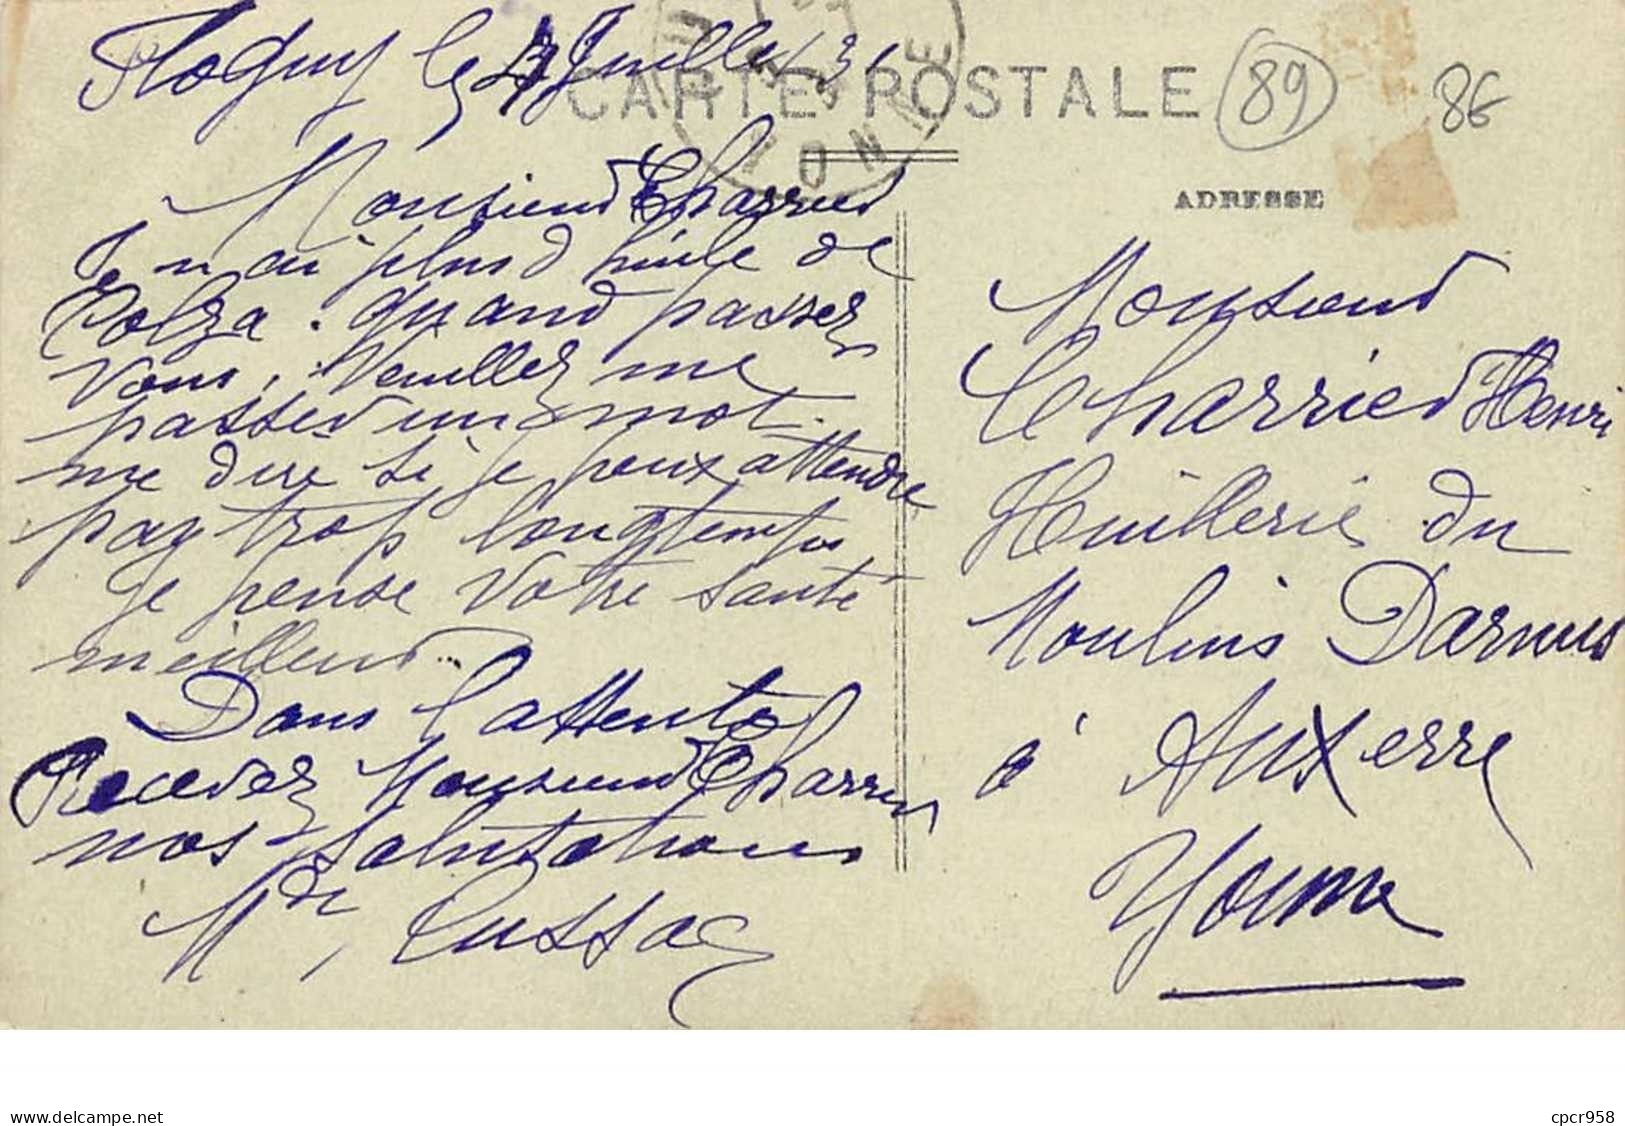 Flogny le 4 Juillet 31
CARTE POSTALE
89
86
YONNE
Monsieur Charrier
Je n ai plus d huile de
Colza. quand passez
Vous, Veuillez me
passer un mot.
me dire si je peux attendre
pay trop longtemps,
je pense Votre santé
meilleur.
Dans l'attente
Recever Monsieur Charrier
nos salutations
Mde Cussac
ADRESSE
Monsieur
Charrier Henri
Huillerie du
Moulins Darnus
à Auxerre
Yonne
delcampe.net
cpcr958